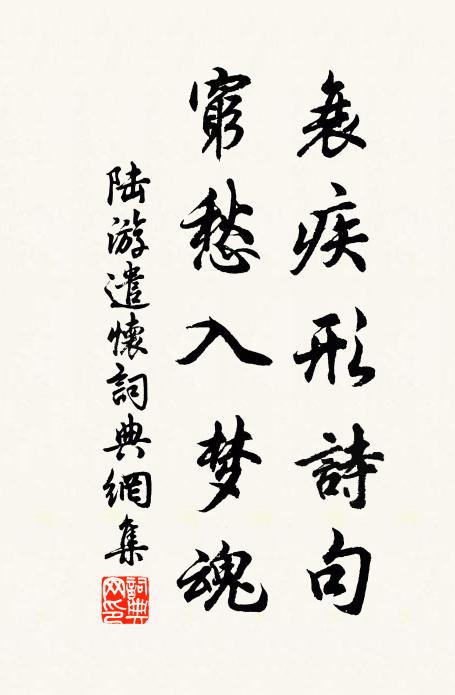 衰疾形詩句
窮愁入梦魂
陆游遣懷詞典網集
詞典網印